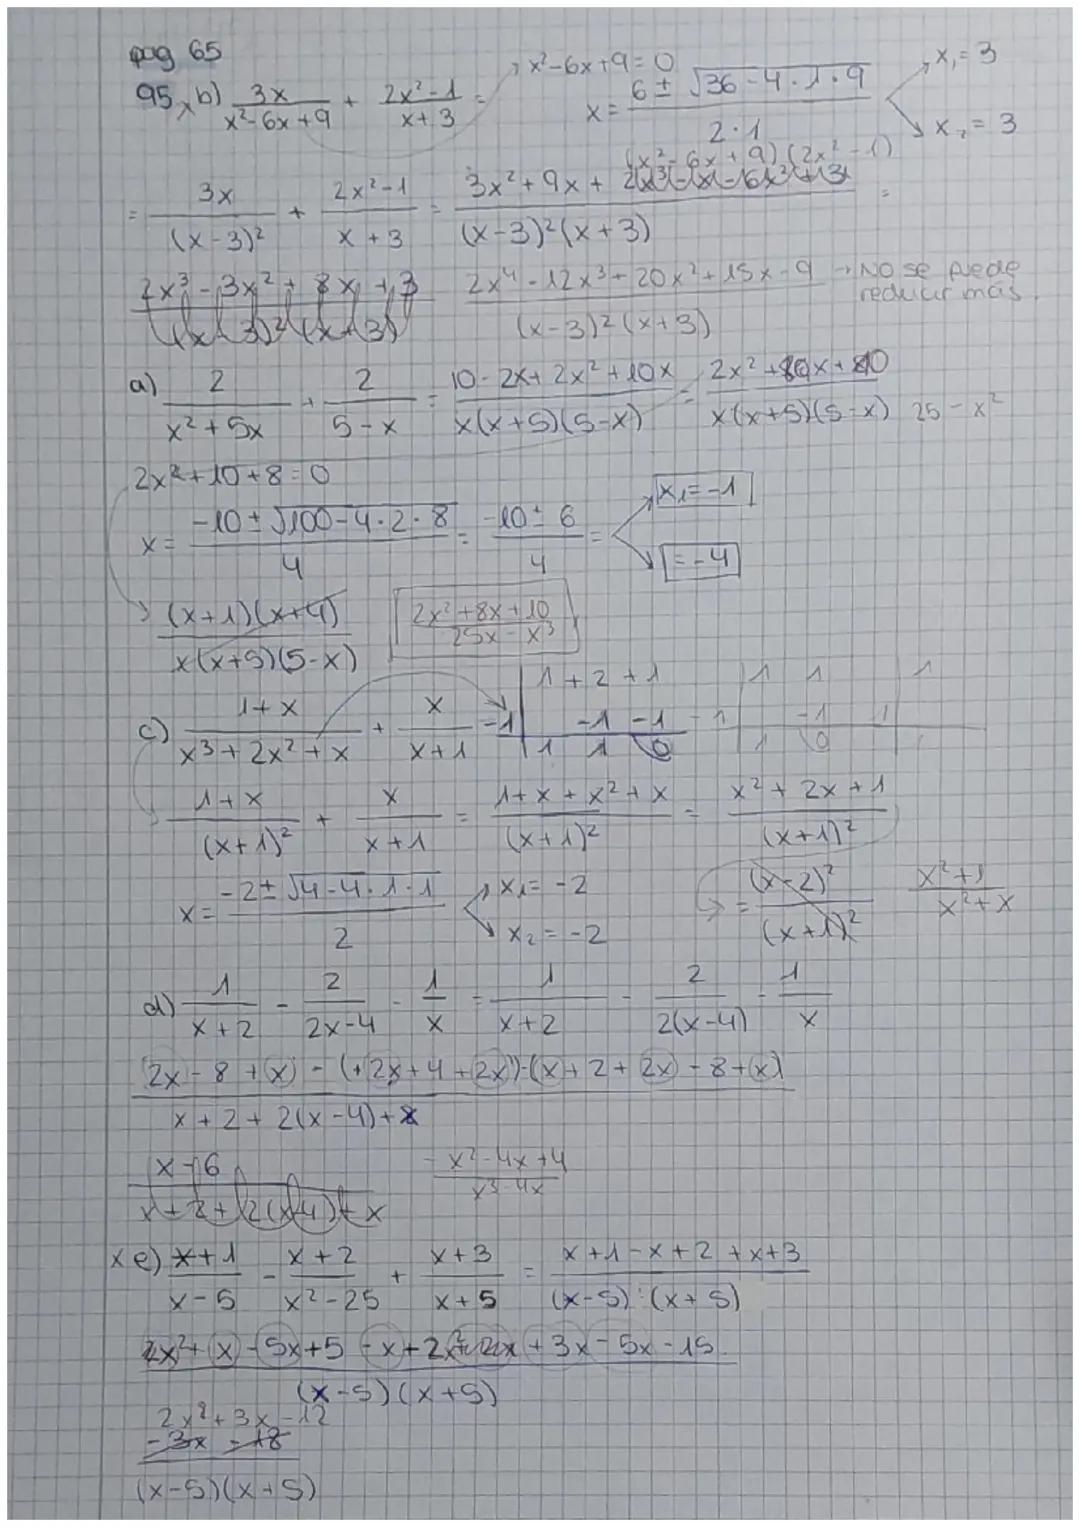 pag 65
95, b) 3x/(x²-6x+9) + (2x²-1)/(x+3) = → x²-6x+9=0 x= (6 ± √(36-4·1·9))/(2·1) x₁= 3 x₂= 3
= 3x/(x-3)² + (2x²-1)/(x+3) = (3x²+9x+ (x²-6x+9)(2x²-1))/((x-3)²(x+3)) =
(2x³-3x²+8x+3)/((x-3)²(x+3)) (2x⁴-12x³+20x²+15x-9)/((x-3)²(x+3)) → No se puede
reducir más.
a) 2/(x²+5x) + 2/(5-x) = (10-2x+2x²+10x)/(x(x+5)(5-x)) = (2x²+8x+10)/(x(x+5)(5-x)) 25-x²
2x²+10+8=0
x= (-10±√(100-4·2·8))/4 = (-10±6)/4 = x₁=-1 =-4
(x+1)(x+4)/(x(x+5)(5-x)) (2x²+8x+10)/(25x-x³)
c) (1+x)/(x³+2x²+x) + x/(x+1) = 1+2+1 1 1 1
-1 -1 -1 -1 -1
1 1 0 1 0
(1+x)/(x+1)² + x/(x+1) = (1+x+x²+x)/(x+1)² = (x²+2x+1)/(x+1)²
x= (-2±√(4-4·1·1))/2 x₁= -2 x₂= -2 = (x-2)²/(x+1)² (x²+1)/(x²+x)
d) 1/(x+2) - 2/(2x-4) - 1/x = 1/(x+2) - 2/(2(x-4)) - 1/x
(2x-8+x) - (+2x+4+2x) - (x+2+2x-8+x)
x+2+2(x-4)+x
(x-6)/(x+2+2(x-4)+x) (-x²-4x+4)/(x³-4x)
x e) (x+1)/(x-5) - (x+2)/(x²-25) + (x+3)/(x+5) = (x+1-x+2+x+3)/((x-5)·(x+5))
2x²+x-5x+5-x+2+2x+3x-5x-15
(x-5)(x+5)
2x²+3x-12
-3x -18
(x-5)(x+5)